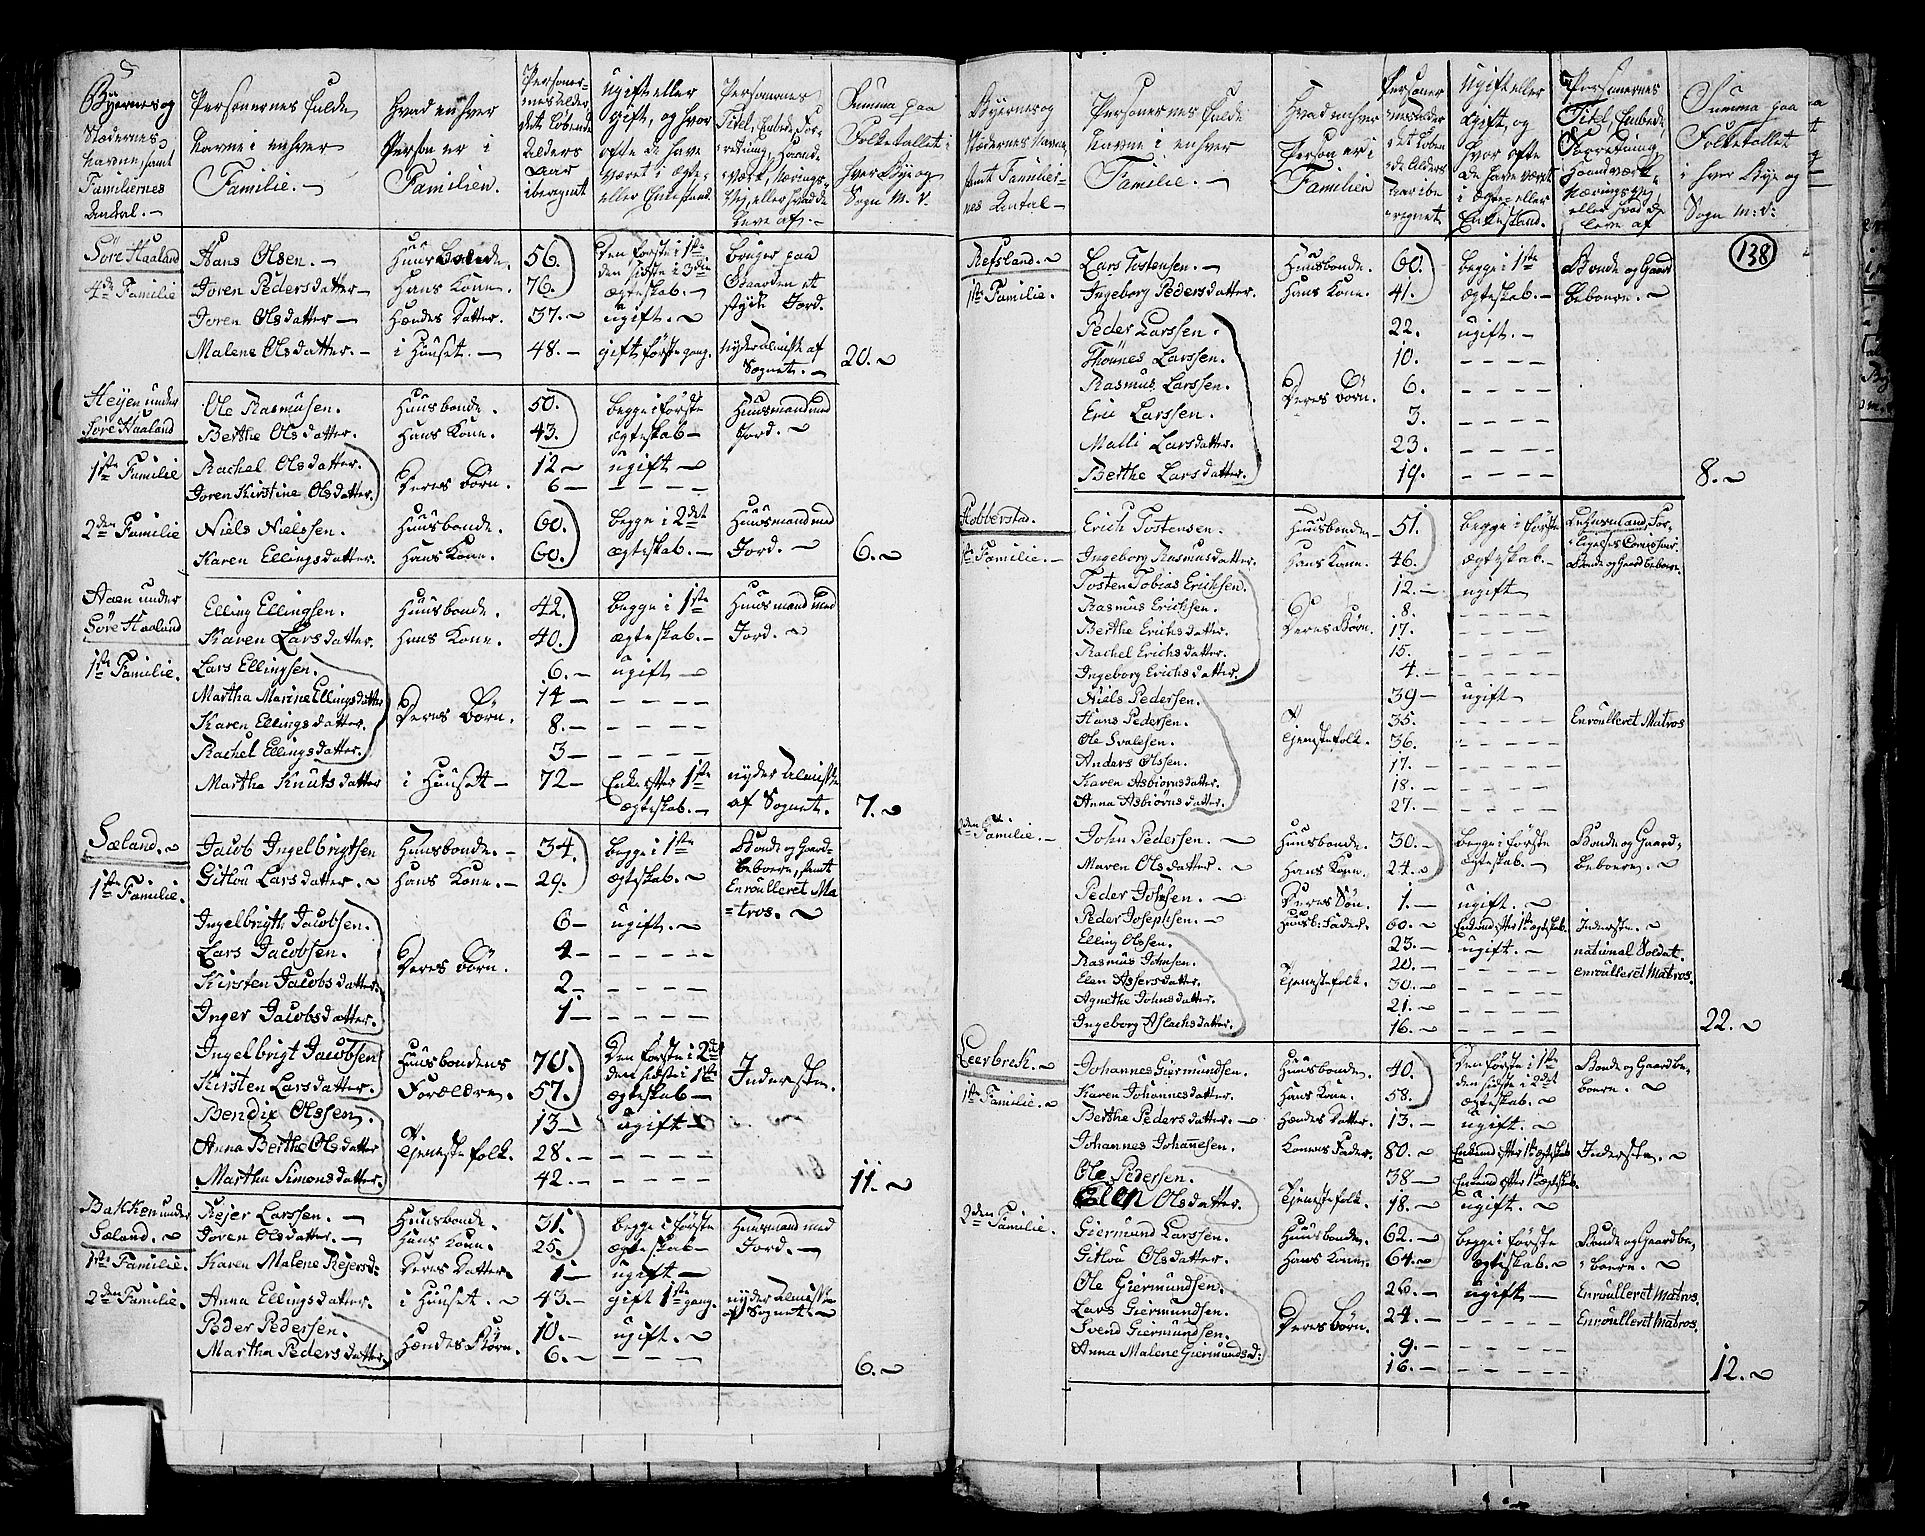 Byernes og
Stædernes
Navne, samt
Familiernes
Antal. –
Personernes fulde
Navne i enhver
Familie. –
Hvad enhver
Person er i
Familien.
Personer-
nes alder,
det løbende
Alders
Aar
iberegnet
Ugift eller
gift, og hvor
ofte de have
været i Ægte-
eller Enkestand.
Personernes
Titel, Embede, For-
retning, Haand-
værk, Nærings-
Vej, eller hvad de
leve af. –
Summa paa
Folketallet i
hver Bye og
Sogn m. v.
Søre Haaland Hans Olsen. – Huusbonde. 56. Den første i 1ste bruger paa
4de Familie Joren Pedersdatter – Hans Kone. 76. den sidste i 3die Gaarden et
ægteskab. – stykke Jord.
Joren Olsdatter – Hendes Datter. 37. – ugift.
Malene Olsdatter. – i Huuset. – 48. – gift første gang. nyder Almisse af
Sognet. – 20.
Heyen under
Søre Haaland
Ole Rasmusen. Huusbonde. 50. begge i første Huusmand med
Berthe Olsdatter. Hans Kone. 43. ægteskab – Jord.
1ste Familie Rachel Olsdatter. Deres Børn. 12 – ugift –
Joren Kirstine Olsdatter. 6 – – – – –
2den Familie Niels Nielssen. Huusbonde. 60. begge i 2det Huusmand med
Karen Ellingsdatter. Hans Kone. 60. ægteskab. – Jord. – 6.
Aaen under
Søre Haaland
Elling Ellingsen. Huusbonde. 42. begge i 1ste Huusmand med
Karen Larsdatter. Hans Kone. 40. ægteskab. – Jord.
1ste Familie. Lars Ellingsen. 6. – ugift –
Martha Marine Ellingsdatter Deres Børn. 14 – – – – –
Karen Ellingsdatter. 8. – – – – –
Rachel Ellingsdatter. 3 – – – – –
Martha Knutsdatter i Huuset – 72 – Enke efter 1ste nyder Almisse
ægteskab. – af Sognet. 7.
Sæland.
Jacob Ingelbrigtsen Huusbonde. – 34. begge i 1ste Bonde og Gaard-
Gitlou Larsdatter. Hans Kone. – 29. ægteskab. beboere, samt
1ste Familie. Enroulleret Ma
=tros.
Ingelbrigth Jacobsen. 6 – ugift.
Lars Jacobsen. Deres Børn. 4 – – – – –
Kirsten Jacobsdatter. 2 – – – – –
Inger Jacobsdatter. 1 – – – – –
Ingelbrigt Jacobsen Huusbondens 70. Den første i 2det
Kirsten Larsdatter. Forældre. 57. den sidste i 1ste Inderste.
ægteskab –
Bendix Olssen. Tjenestefolk. 13 – ugift –
Anna Berthe Olsdatter 28. – – – – –
Martha Simonsdatter. 42. – – – – – 11.
Bakken under
Sæland.
Rejer Larssen. – Huusbonde. 31. begge i første Huusmand med
Joren Olsdatter. – Hans Kone. 25. ægteskab – Jord. –
1ste Familie. Karen Malene Rejersd: Deres Datter. 1 – ugift –
2den Familie. Anna Ellingsdatter. i Huuset. 43. – gift 1ste gang. nyder Almisse
af Sognet.
Peder Pedersen. Hendes Børn. 10. – ugift.
Martha Pedersdatter. 6. – – – – – 6.
138
Byernes og
Stædernes Navne,
samt Familier-
nes Antal –
Personernes fulde
Navne i enhver
Familie. –
Hvad enhver
Person er i
Familien
Personer
nes alder
det løben
de Alders
Aar ibe
regnet
Ugift eller
Gift, og
hvor ofte
de have været
i Ægte- eller
Enkestand.
Personernes
Titel, Embede,
Forretning,
Haandværk,
Næringsvej
eller hvad de
leve af
Summa paa
Folketallet
i hver Bye og
Sogn m: v:
Refsland. Lars Tostensen. – Huusbonde. 60. begge i 1ste Bonde og Gaard
1ste Familie. Ingeborg Pedersdatter. Hans Kone. 41. ægteskab. – beboere.
Peder Larssen. Deres Børn. 22. ugift. –
Thønes Larssen. 10. – – – –
Rasmus Larssen. 6. – – – –
Eric Larssen. 3. – – – –
Malli Larsdatter. 23. – – – –
Berthe Larsdatter. 19. – – – – 8.
Hobberstad. Erich Tostensen. Huusbonde – 51. begge i første Lensmand, For-
ligelses Comissair
1ste Familie. – Ingeborg Rasmusdatter. Hans Kone. 46. ægteskab. – Bonde og Gaardbeboere.
Tosten Tobias Erichsen. Deres Børn. 12. – ugift
Rasmus Erichsen. 8. – – – –
Berthe Erichsdatter. 17. – – – –
Rachel Erichsdatter. 15. – – – –
Ingeborg Erichsdatter. 4. – – – –
Niels Pedersen. Tjenestefolk. 39 – ugift
Hans Pedersen. 35. – – – – Enroulleret Matros
Ole Svalesen. 36. – – – –
Anders Olssen. 17. – – – –
Karen Asbiørnsdatter. 18. – – – –
Anna Asbiørnsdatter. 27. – – – –
2den Familie. – John Pedersen. – Huusbonde. 30. – begge i første Bonde og Gaard-
Maren Olsdatter. Hans Kone. 24. ægteskab. – beboere.
Peder Johnsen. – Deres Søn. 1. – ugift.
Peder Josephsen. – Huusb: Fader. 60. Enkemd. efter 1ste ægteskab. Inderste.
Elling Olssen. Tjenestefolk. 23. – ugift. – national Soldat.
Rasmus Johnsen. 20. – – – – enroulleret Matros.
Elen Assersdatter. 30. – – – –
Agnethe Johnsdatter. 21. – – – –
Ingeborg Aslachsdatter. 16. – – – – 22.
Leerbrek. Johannes Giermundsen. Huusbonde. 40. Den første i 1ste Bonde og Gaardbe-
1ste Familie. Karen Johannesdatter. Hans Kone. 58. den sidste i 2det boere.
ægteskab.
Berthe Pedersdatter. – Hendes Datter. 13. – ugift.
Johannes Johannesen. Konens Fader. 80. Enkemd. efter 1ste ægteskab Inderste.
Ole Pedersen. Tjenestefolk. 38 – Enkemd efter 1ste ægteskab.
Elen Olsdatter. 18. – ugift.
2den Familie. Giermund Larssen. Huusbonde. 62. – begge i første Bonde og Gaardbe-
Gitlou Olsdatter. Hans Kone. 64. ægteskab. boere.
Ole Giermundsen. Deres Børn. 26. – ugift – Enroulleret Matros.
Lars Giermundsen. 24. – – – – – Enroulleret Matros.
Svend Giermundsen. 9. – – – – –
Anna Malene Giermundsd: 16. – – – – – 12.